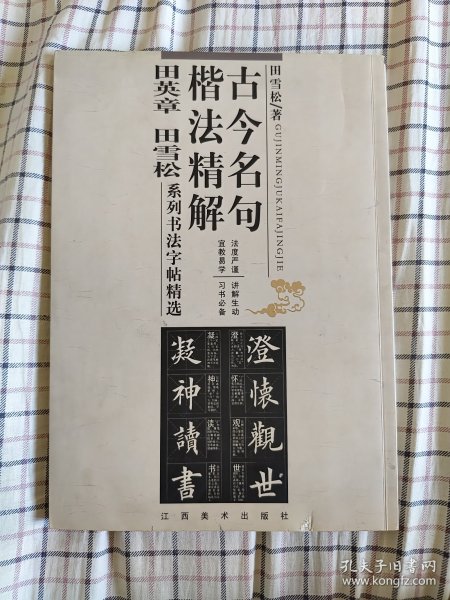 田雪松/著
GUJINMINGJUKAIFAJINGJIE
古今名句
楷法精解
田英章 田雪松
系列书法字帖精选
法度严谨 讲解生动
宜教易学 习书必备
澄懷觀世
澄怀观世
凝神讀書
凝神读书
江西美术出版社
孔夫子旧书网
www.kongfz.com